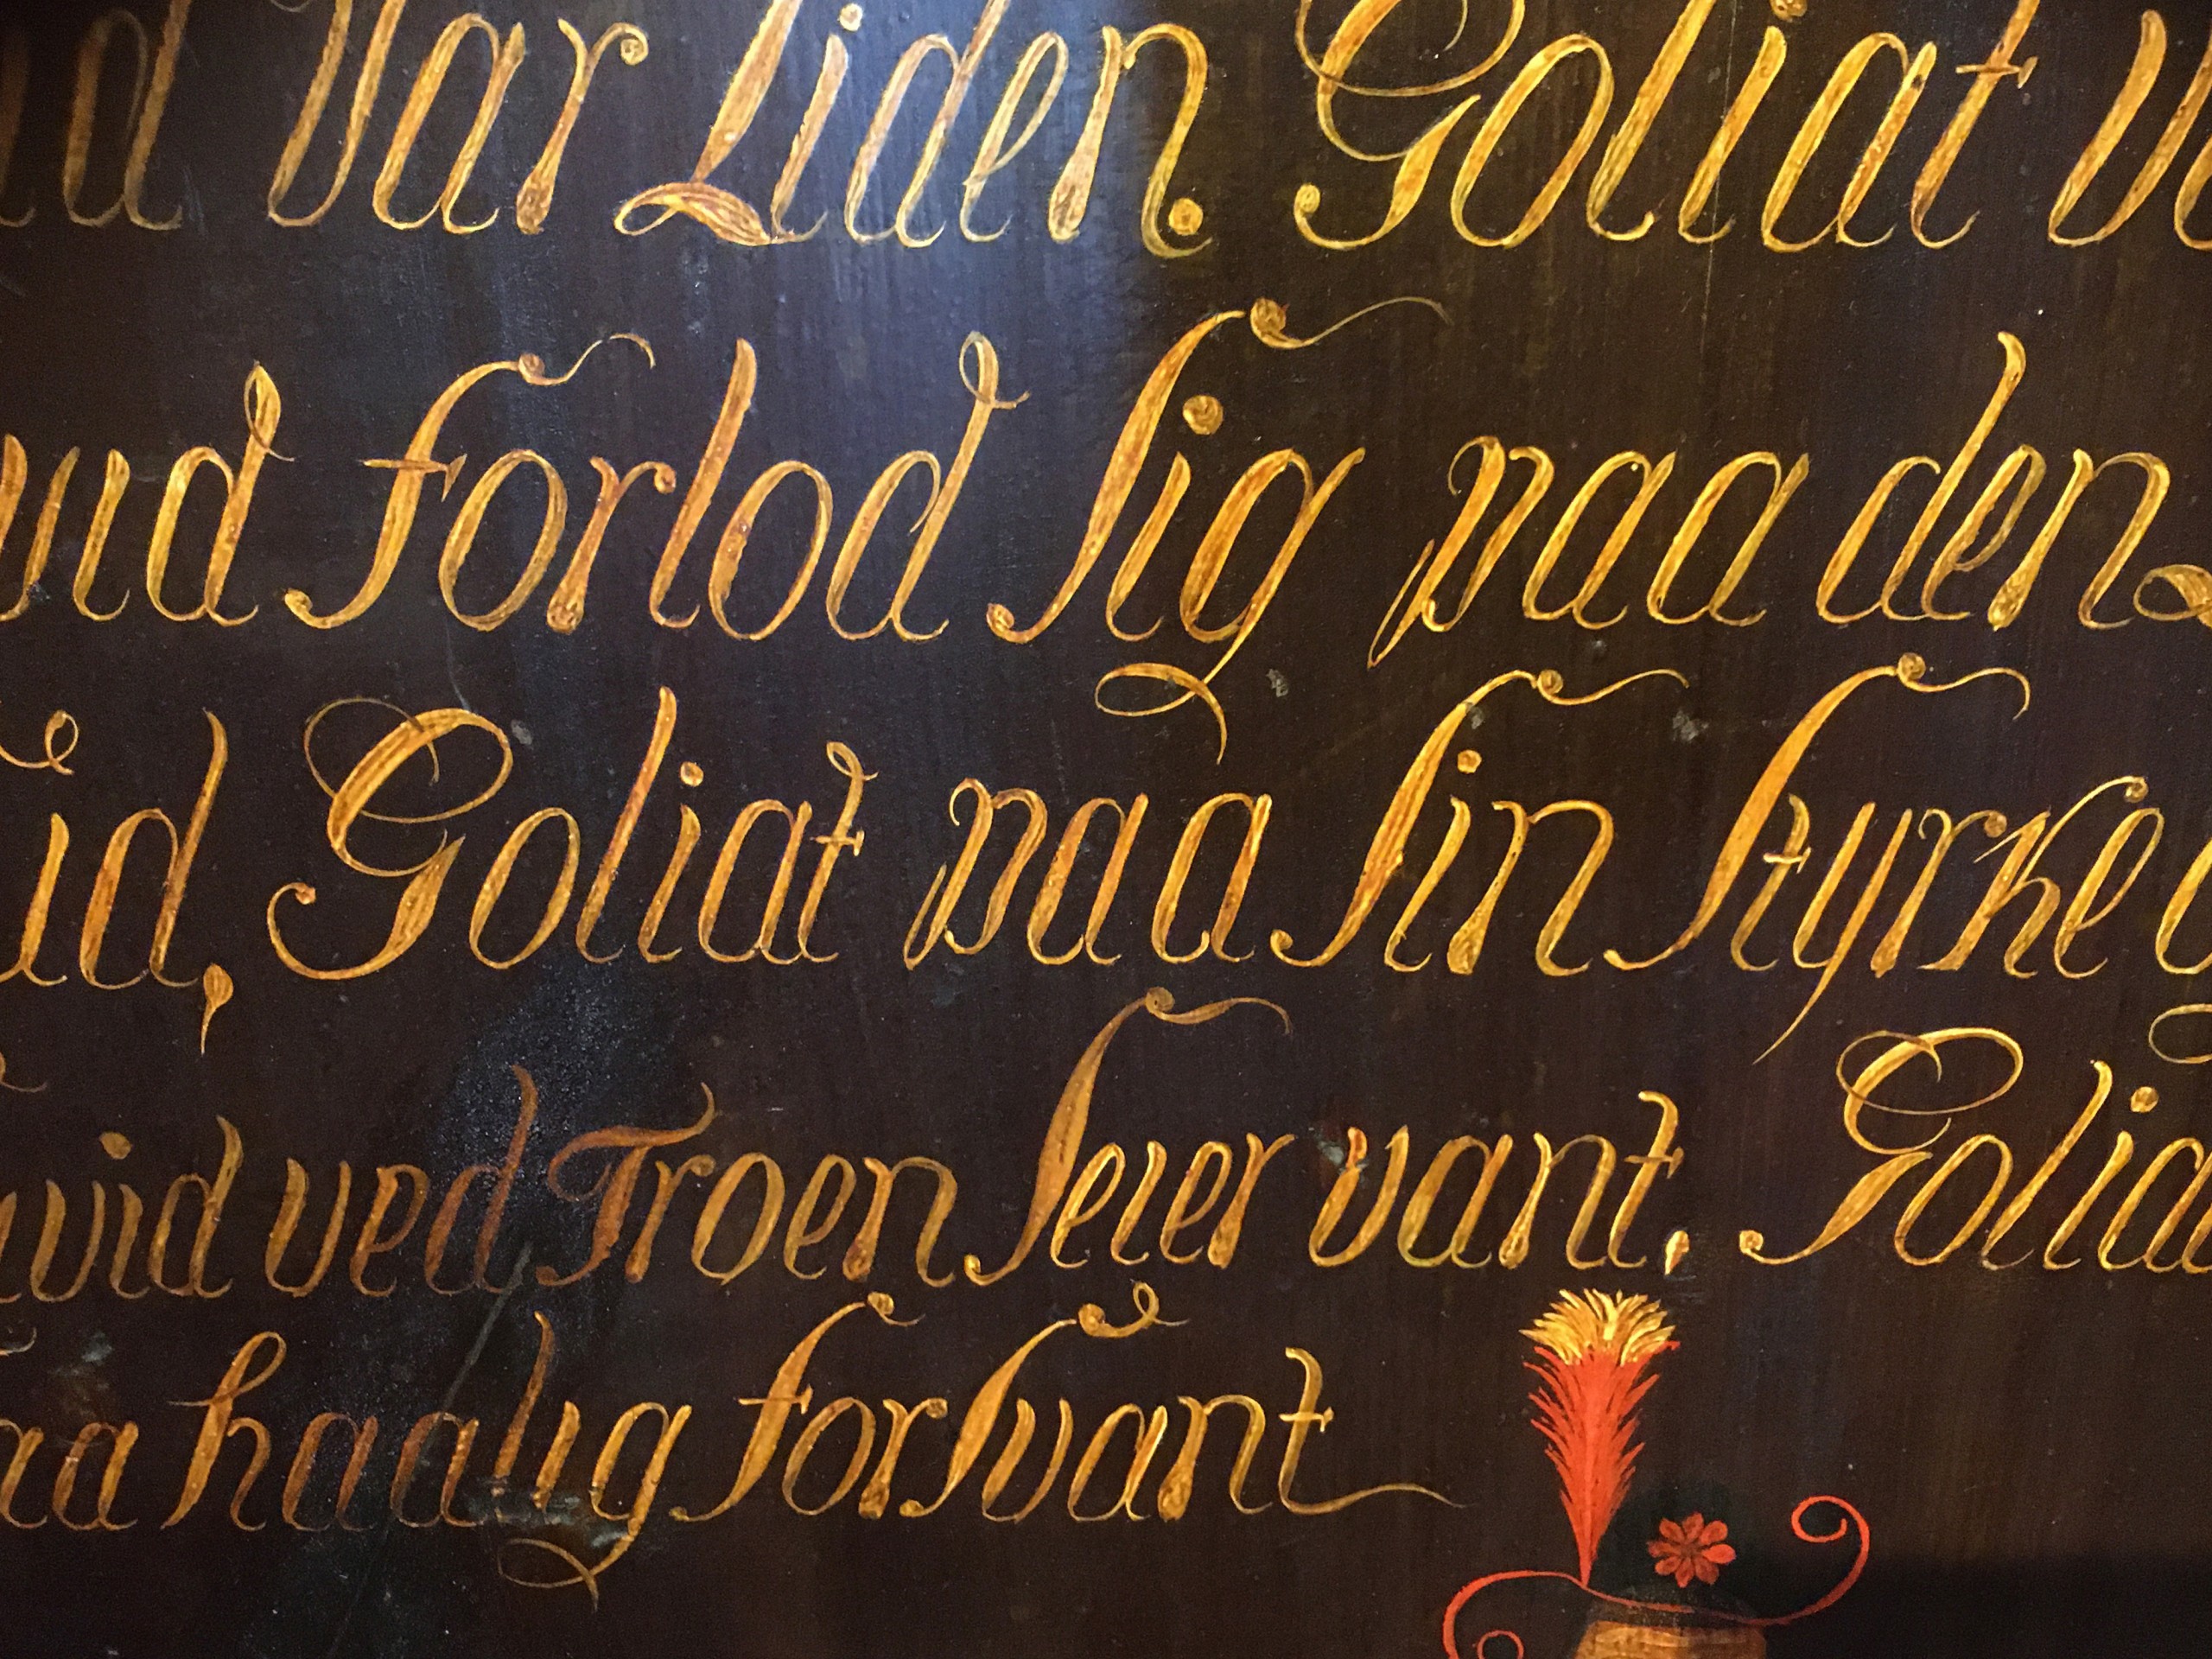 Var Liden. Goliat
forlod sig paa den
Goliat paa sin styrke
ved Troen seier vant. Golia
haalig forsvant